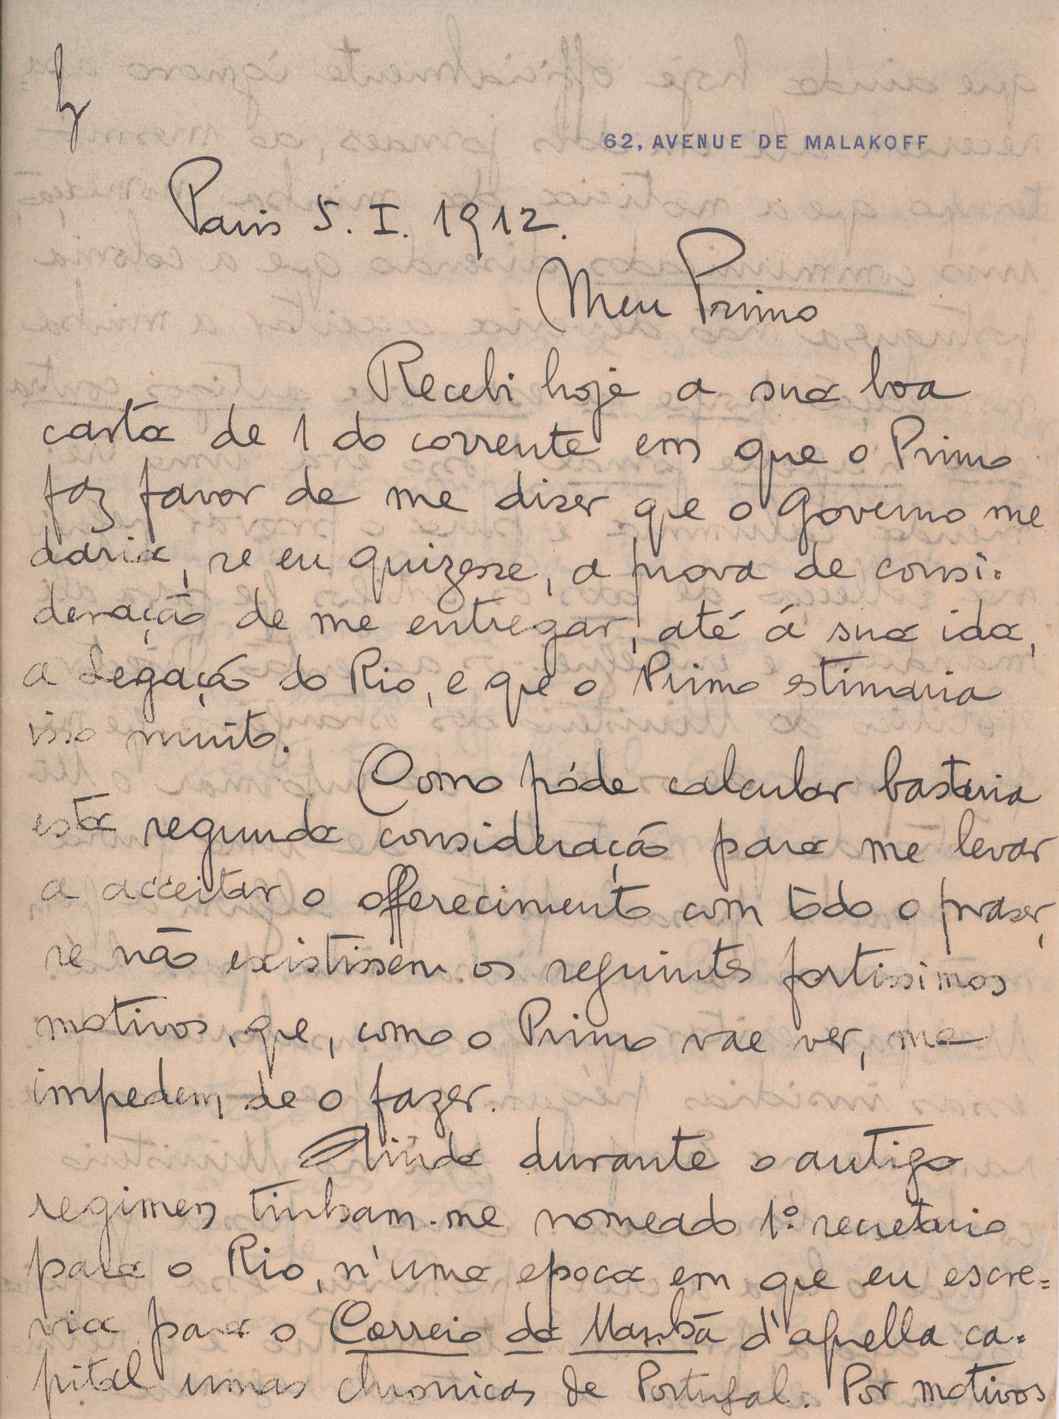 62, AVENUE DE MALAKOFF
Paris 5. I. 1912.
Meu Primo
Recebi hoje a sua boa
carta de 1 do corrente em que o Primo
faz favor de me dizer que o Governo me
daria, se eu quizesse, a prova de consi-
deração de me entregar, até á sua ida,
a Legação do Rio, e que o Primo estimaria
isso muito.
Como póde calcular bastaria
esta segunda consideração para me levar
a acceitar o offerecimento com tòdo o praser,
se não existissem os seguintes fortissimos
motivos, que, como o Primo vae ver, me
impedem de o fazer.
Ainda durante o antigo
regimen tinham-me nomeado 1º secretario
para o Rio, n'uma epoca em que eu escre=
via para o Correio da Manhã d'aquella ca-
pital umas chronicas de Portugal. Por motivos